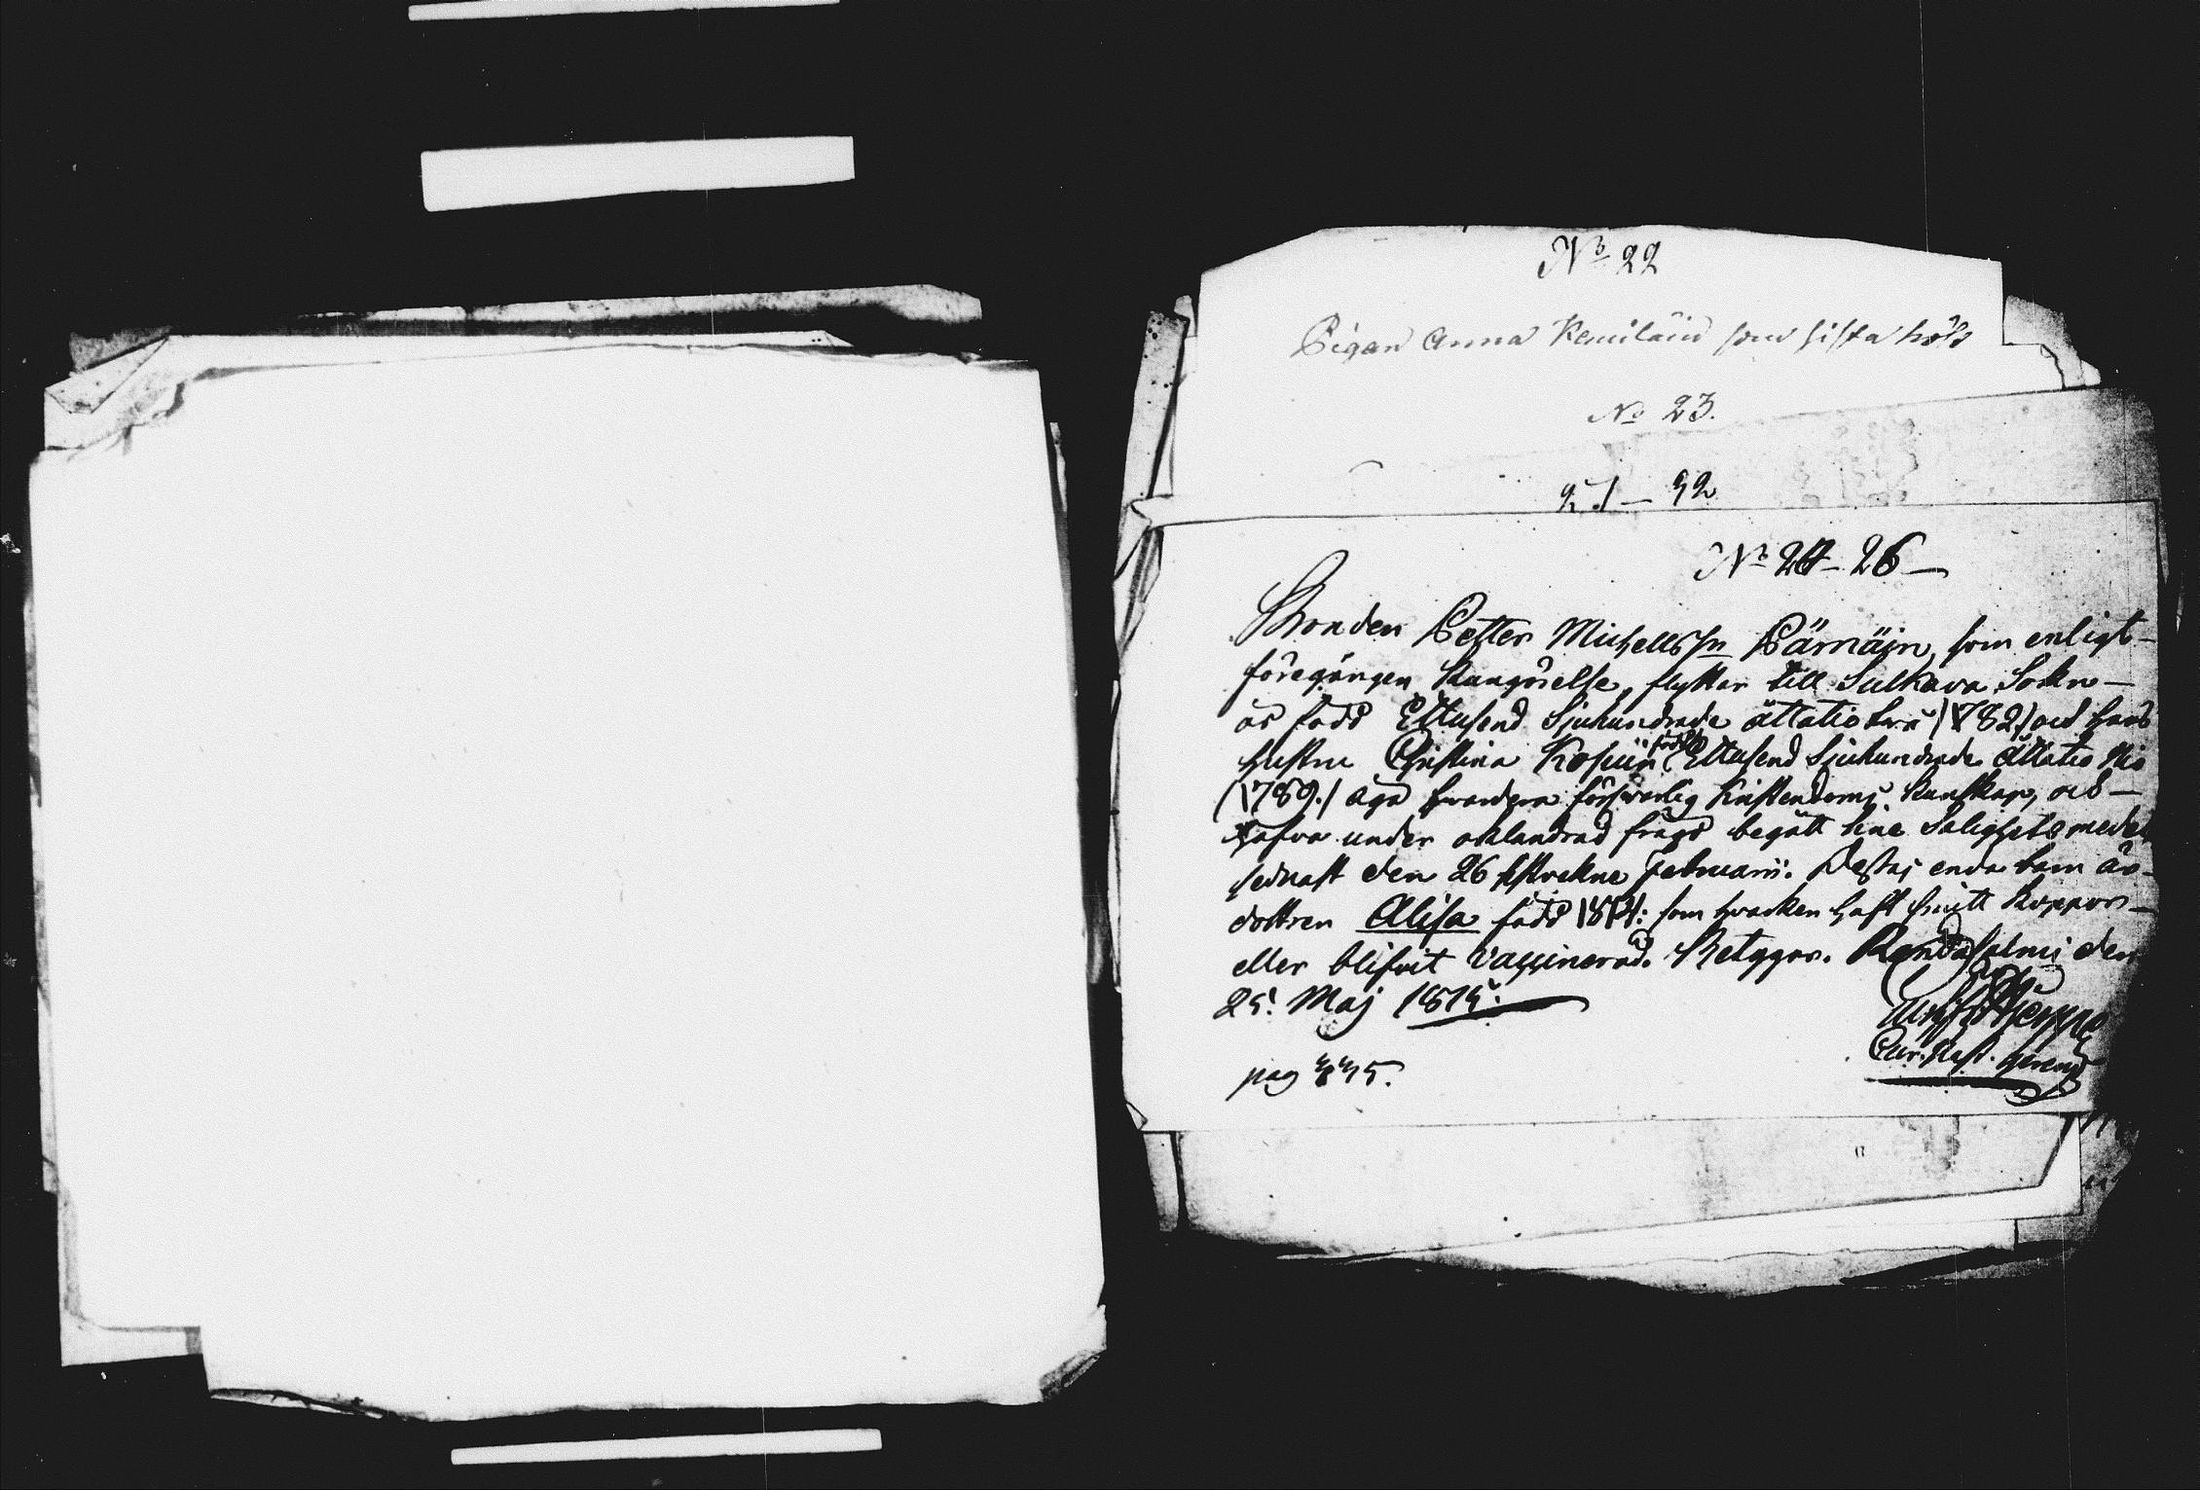 No 22
Pigan Anna Kemiläin som sista höst
No 23.
No 24 - 26 -
Bonden Petter Michellsn Pärnäin, som enligt
föregången Kungörelse, flyttar till Sulkava Sokn -
är född Ettusend Sjuhundrade åttatio två (1782) och hans
hustru Christina Kosuin född Ettusend Sjuhundrade Åttatio Nio
(1789.) äga hvardera försvarlig Kristendoms Kunskap, och -
hafva under oklandrad frägd begått sine Salighets medel
sednast den 26 sistvekne Februarii. Dessas enda barn är
dottren Alisa född 1814: som hvarken haft smitt koppor -
eller blifvit Vaccinerad. Betygar. Randasalmi den
25 Maj 1815.
pag